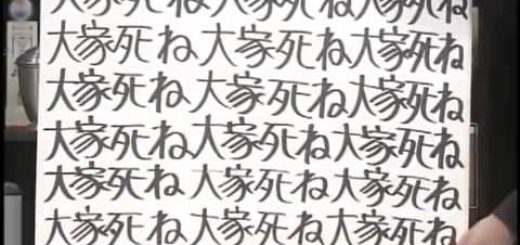 大家死ね大家死ね大家死ね
大家死ね大家死ね大家死ね
大家死ね大家死ね大家死ね
大家死ね大家死ね大家死ね
大家死ね大家死ね大家死ね
大家死ね大家死ね大家死ね